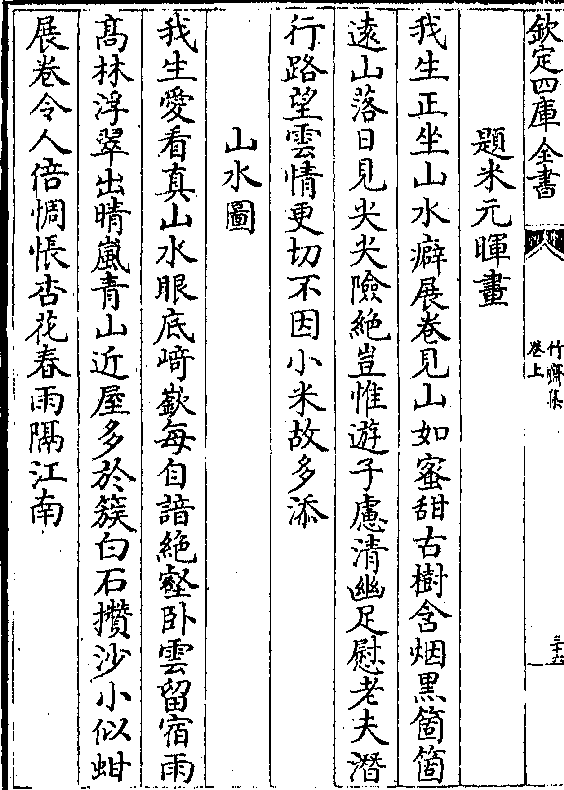 欽定四庫全書
竹齋集
卷上
三十六
題米元暉畫
我生正坐山水癖展卷見山如蜜甜古樹含烟黒箇箇
逺山落日見尖尖險絶豈惟遊子慮清幽足慰老夫潛
行路望雲情更切不因小米故多添
山水圖
我生愛看真山水眼底﨑嶔每自諳絶壑卧雲留宿雨
髙林浮翠出晴嵐青山近屋多於簇白石攢沙小似蚶
展卷令人倍惆悵杏花春雨隔江南